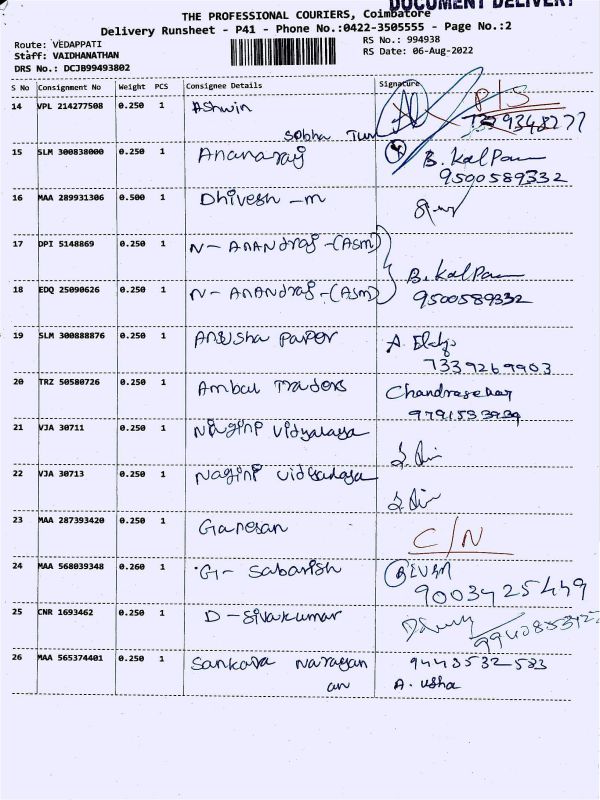 DOCUMENT DELIVERY
THE PROFESSIONAL COURIERS, Coimbatore
Delivery Runsheet - P41 - Phone No.:0422-3505555 - Page No.:2
Route: VEDAPPATI
Staff: VAIDHANATHAN
DRS No.: DCJB99493802
RS No.: 994938
RS Date: 06-Aug-2022
S No Consignment No Weight PCS Consignee Details Signature
14 VPL 214277508 0.250 1 Ashwin P/S
Sobha
15 SLM 300838000 0.250 1 Ananaraj B. Kalpana
9500589332
16 MAA 289931306 0.500 1 Dhivesh -m
17 DPI 5148869 0.250 1 N- ANANdraj -(Asm)
18 EDQ 25090626 0.250 1 N- ANANdraj -(Asm) B. Kalpana
9500589332
19 SLM 300888876 0.250 1 Anusha Paper A. Eldjo
7339269903
20 TRZ 50580726 0.250 1 Ambal Traders Chandrasekar
21 VJA 30711 0.250 1 Nagini Vidyalaya
22 VJA 30713 0.250 1 Nagini Vidyalaya
23 MAA 287393420 0.250 1 Ganesan C/N
24 MAA 568039348 0.260 1 G- Sabarish
9003425449
25 CNR 1693462 0.250 1 D-Sivakumar
26 MAA 565374401 0.250 1 Sankara Narayan 9443532533
an A. usha